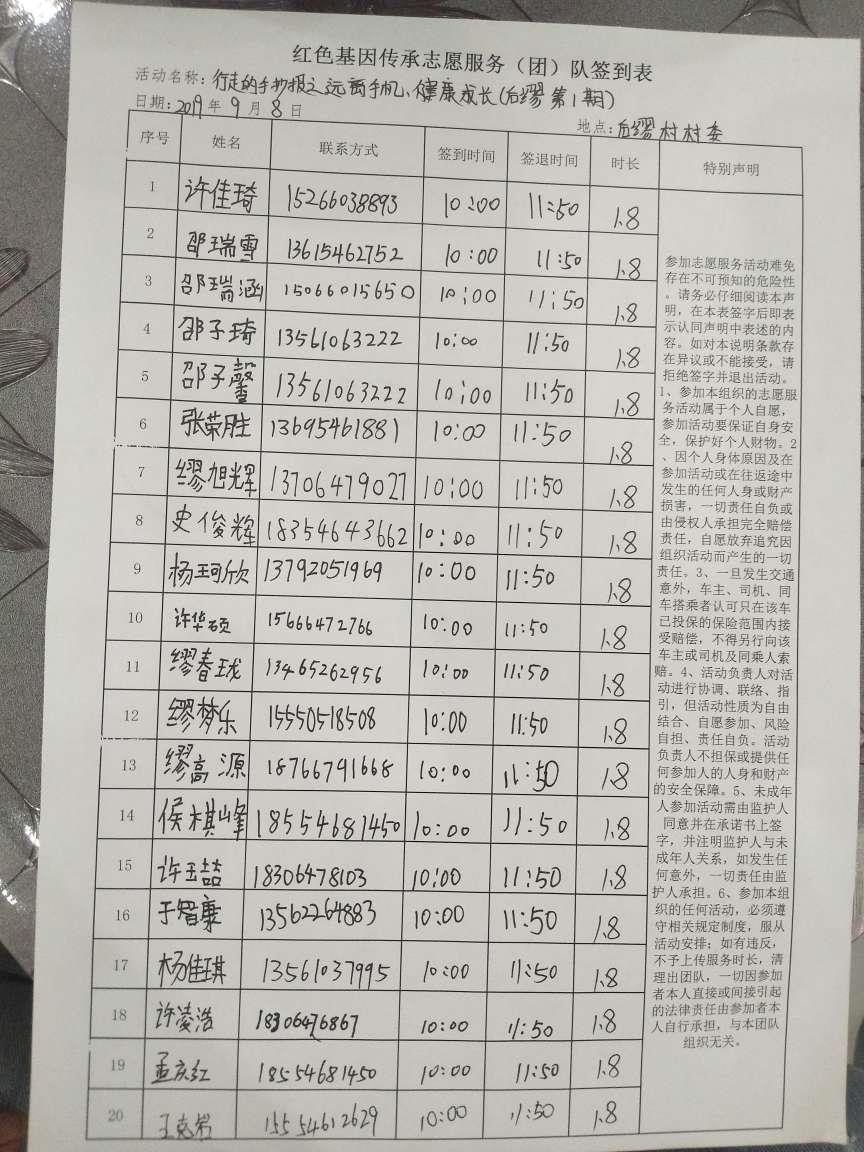 红色基因传承志愿服务（团）队签到表
活动名称：行走的手抄报之远离手机、健康成长(后缪第1期)
日期：2019年9月8日
地点：后缪村村委
序号 姓名 联系方式 签到时间 签退时间 时长 特别声明
1 许佳琦 15266038893 10:00 11:50 1.8
2 邵瑞雪 13615462752 10:00 11:50 1.8
3 邵瑞涵 15066015650 10:00 11:50 1.8
4 邵子琦 13561063222 10:00 11:50 1.8
5 邵子馨 13561063222 10:00 11:50 1.8
6 张荣胜 13695461881 10:00 11:50 1.8
7 缪旭辉 13706479027 10:00 11:50 1.8
8 史俊辉 18354643662 10:00 11:50 1.8
9 杨珂欣 13792051969 10:00 11:50 1.8
10 许华硕 15666472766 10:00 11:50 1.8
11 缪春珑 13465262956 10:00 11:50 1.8
12 缪梦乐 15550518508 10:00 11:50 1.8
13 缪高源 18766791668 10:00 11:50 1.8
14 侯棋峰 18554681450 10:00 11:50 1.8
15 许玉喆 18306478103 10:00 11:50 1.8
16 于智康 13562264883 10:00 11:50 1.8
17 杨佳琪 13561037995 10:00 11:50 1.8
18 许凌浩 18306476867 10:00 11:50 1.8
19 孟庆红 18554681450 10:00 11:50 1.8
20 王克岩 15554612629 10:00 11:50 1.8
参加志愿服务活动难免
存在不可预知的危险性
。请务必仔细阅读本声
明，在本表签字后即表
示认同声明中表述的内
容。如对本说明条款存
在异议或不能接受，请
拒绝签字并退出活动。
1、参加本组织的志愿服
务活动属于个人自愿，
参加活动要保证自身安
全，保护好个人财物。2
、因个人身体原因及在
参加活动或在往返途中
发生的任何人身或财产
损害，一切责任自负或
由侵权人承担完全赔偿
责任，自愿放弃追究因
组织活动而产生的一切
责任。3、一旦发生交通
意外，车主、司机、同
车搭乘者认可只在该车
已投保的保险范围内接
受赔偿，不得另行向该
车主或司机及同乘人索
赔。4、活动负责人对活
动进行协调、联络、指
引，但活动性质为自由
结合、自愿参加、风险
自担、责任自负。活动
负责人不担保或提供任
何参加人的人身和财产
的安全保障。5、未成年
人参加活动需由监护人
同意并在承诺书上签
字，并注明监护人与未
成年人关系，如发生任
何意外，一切责任由监
护人承担。6、参加本组
织的任何活动，必须遵
守相关规定制度，服从
活动安排；如有违反，
不予上传服务时长，清
理出团队，一切因参加
者本人直接或间接引起
的法律责任由参加者本
人自行承担，与本团队
组织无关。